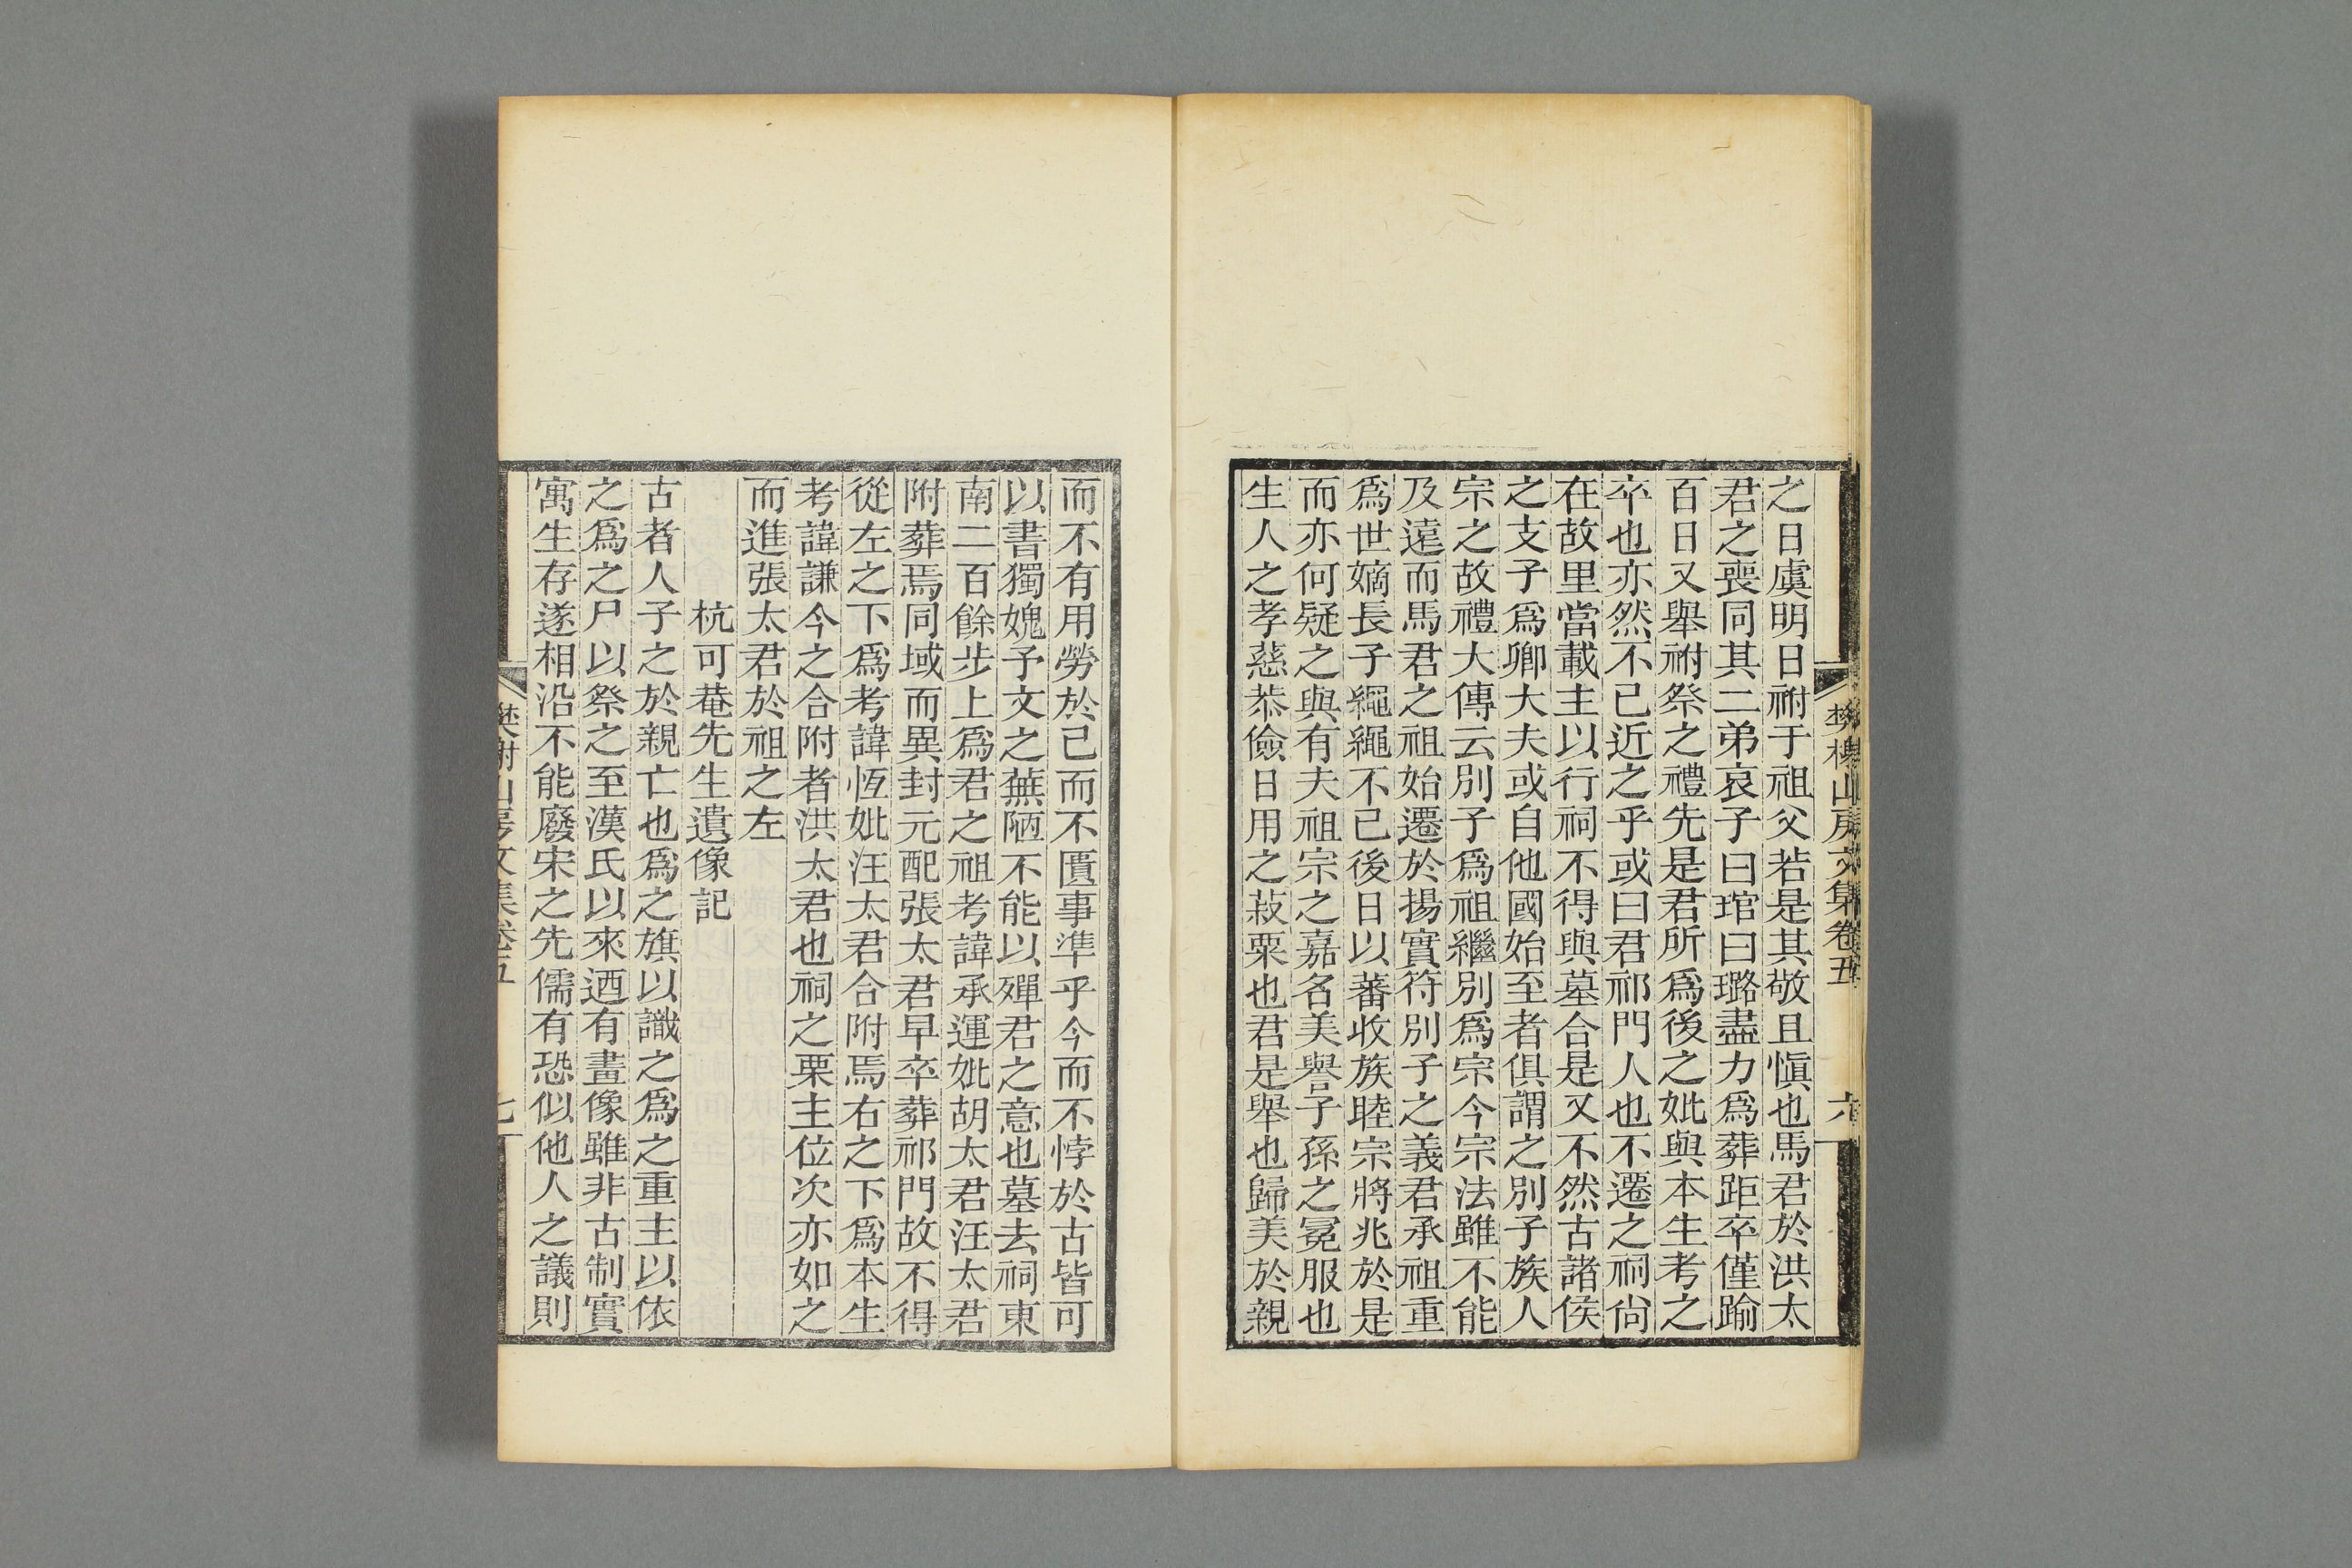 樊榭山房文集卷五
六
之日虞明日祔于祖父若是其敬且愼也馬君於洪太
君之喪同其二弟哀子曰琯曰璐盡力爲葬距卒僅踰
百日又舉祔祭之禮先是君所爲後之妣與本生考之
卒也亦然不已近之乎或曰君祁門人也不遷之祠尙
在故里當載主以行祠不得與墓合是又不然古諸侯
之支子爲卿大夫或自他國始至者俱謂之別子族人
宗之故禮大傳云別子爲祖繼別爲宗今宗法雖不能
及遠而馬君之祖始遷於揚實符別子之義君承祖重
爲世嫡長子繩繩不已後日以蕃收族睦宗將兆於是
而亦何疑之與有夫祖宗之嘉名美譽子孫之冕服也
生人之孝慈恭儉日用之菽粟也君是舉也歸美於親
而不有用勞於己而不匱事準乎今而不悖於古皆可
以書獨媿予文之蕪陋不能以殫君之意也墓去祠東
南二百餘步上爲君之祖考諱承運妣胡太君汪太君
附葬焉同域而異封元配張太君早卒葬祁門故不得
從左之下爲考諱恆妣汪太君合附焉右之下爲本生
考諱謙今之合附者洪太君也祠之栗主位次亦如之
而進張太君於祖之左
杭可菴先生遺像記
古者人子之於親亡也爲之旗以識之爲之重主以依
之爲之尸以祭之至漢氏以來迺有畫像雖非古制實
寓生存遂相沿不能廢宋之先儒有恐似他人之議則
樊榭山房文集卷五
七